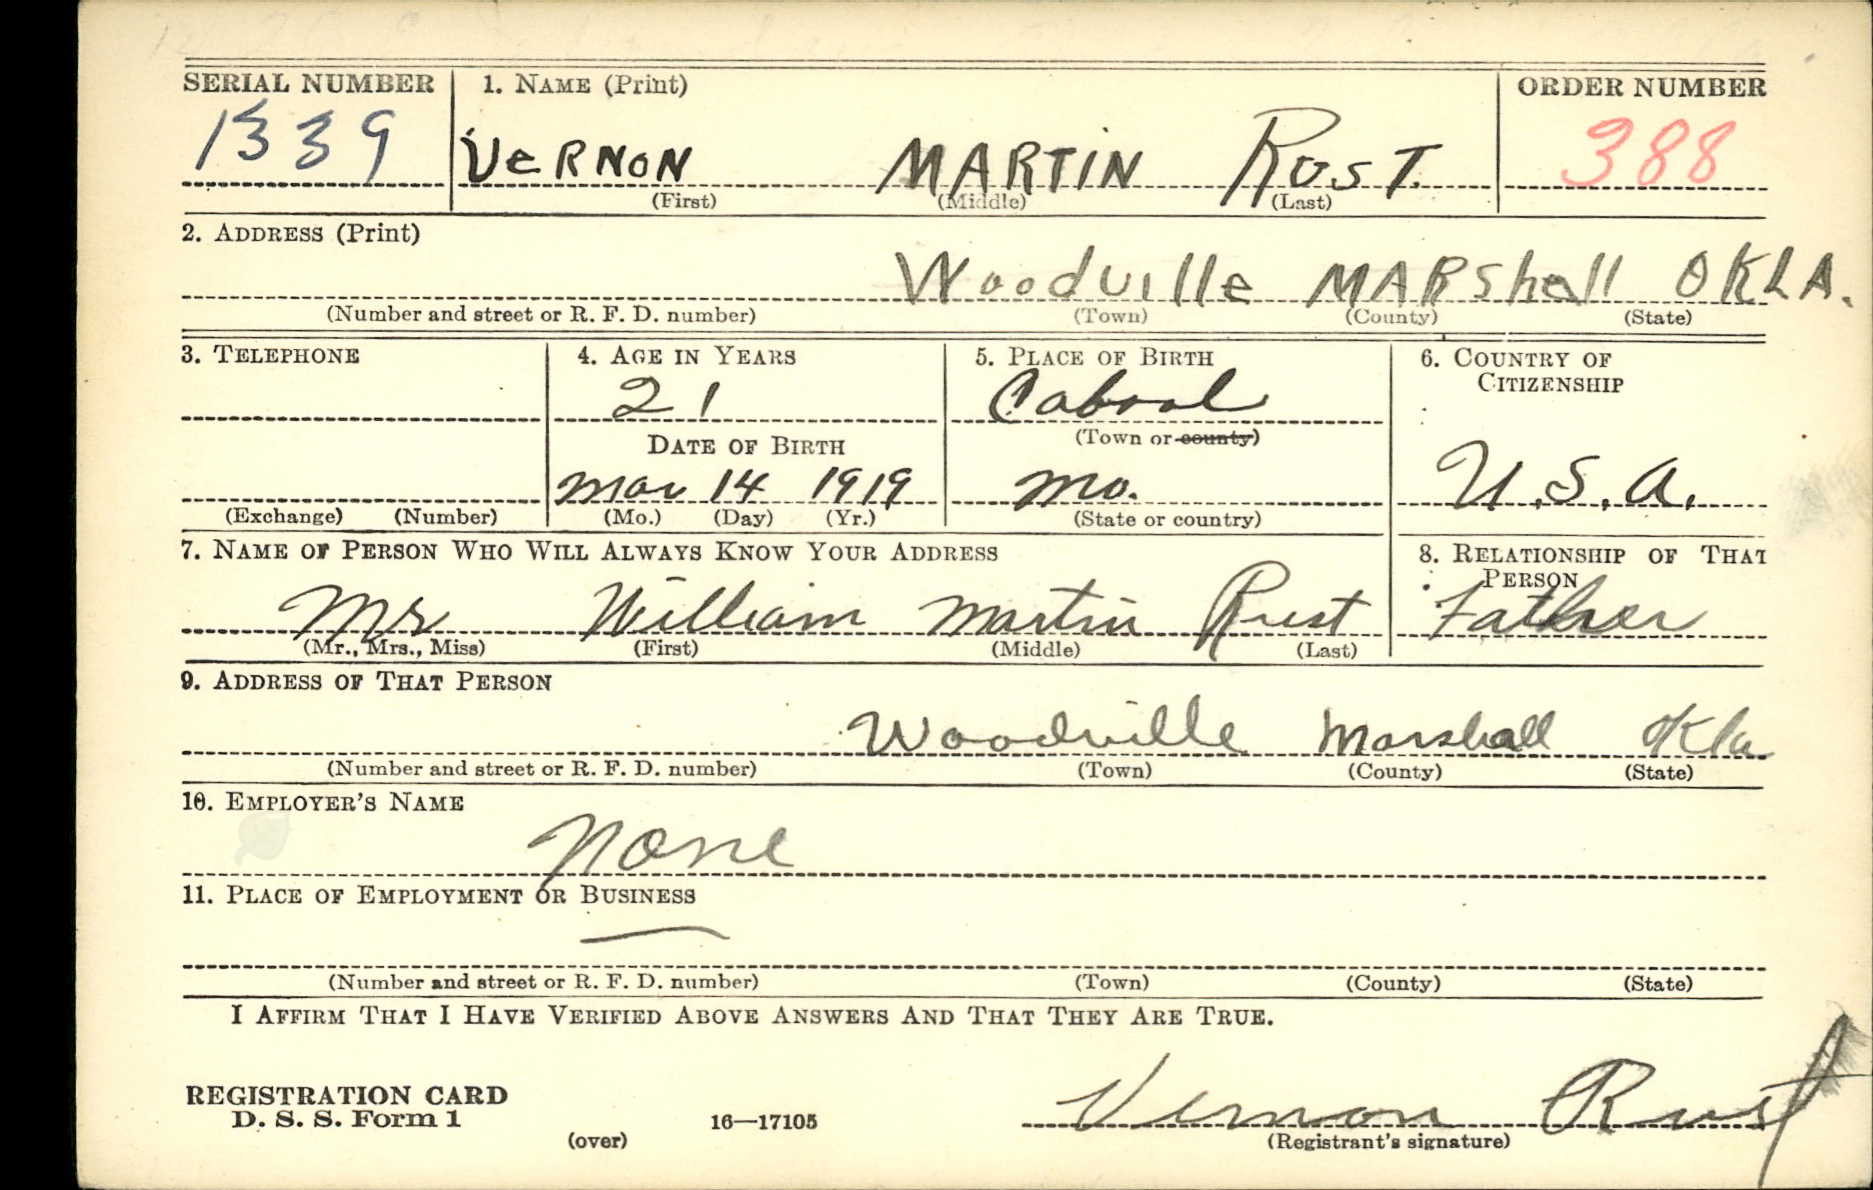 SERIAL NUMBER 1. NAME (Print) ORDER NUMBER
1339 VERNON MARTIN RUST. 388
(First) (Middle) (Last)
2. ADDRESS (Print)
Woodville MARShall OKLA.
(Number and street or R. F. D. number) (Town) (County) (State)
3. TELEPHONE 4. AGE IN YEARS 5. PLACE OF BIRTH 6. COUNTRY OF CITIZENSHIP
21 Cabool
DATE OF BIRTH (Town or county)
Mar 14 1919 Mo. U.S.A.
(Exchange) (Number) (Mo.) (Day) (Yr.) (State or country)
7. NAME OF PERSON WHO WILL ALWAYS KNOW YOUR ADDRESS 8. RELATIONSHIP OF THAT PERSON
Mr William Martin Rust Father
(Mr., Mrs., Miss) (First) (Middle) (Last)
9. ADDRESS OF THAT PERSON
Woodville Marshall Okla
(Number and street or R. F. D. number) (Town) (County) (State)
10. EMPLOYER'S NAME
None
11. PLACE OF EMPLOYMENT OR BUSINESS
—
(Number and street or R. F. D. number) (Town) (County) (State)
I AFFIRM THAT I HAVE VERIFIED ABOVE ANSWERS AND THAT THEY ARE TRUE.
REGISTRATION CARD
D. S. S. Form 1 16—17105 Vernon Rust
(over) (Registrant's signature)